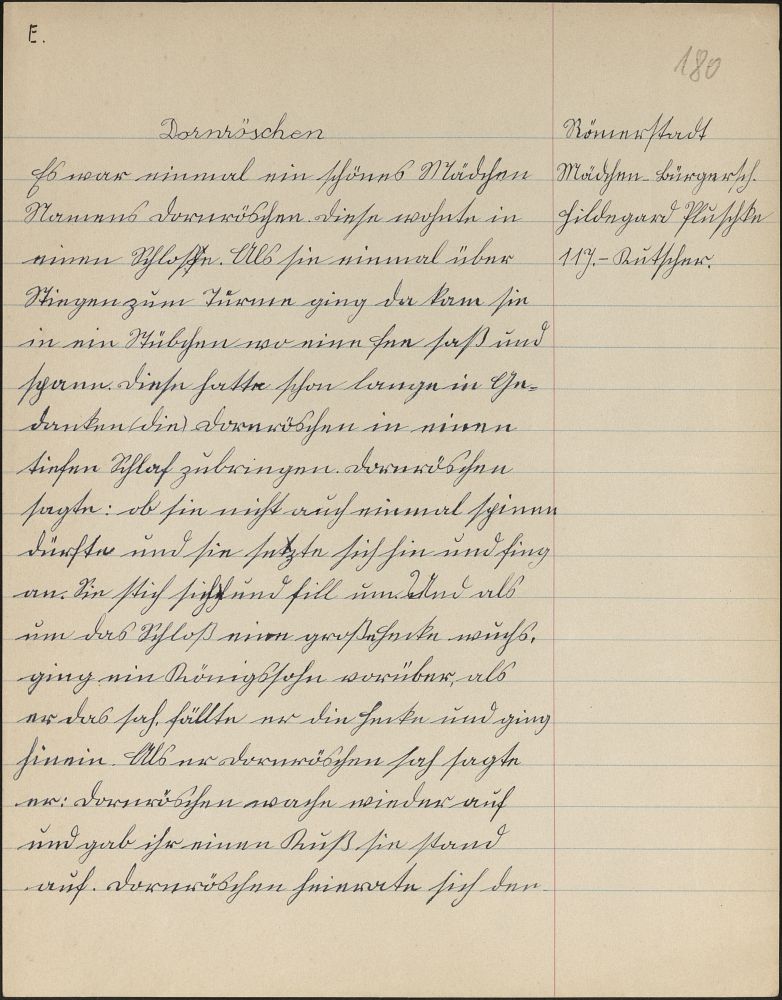 E.
180
Dornröschen
Es war einmal ein schönes Mädchen
Namens Dornröschen. Diese wohnte in
einen Schloße. Als sie einmal über
Stiegen zum Turme ging da kam sie
in ein Stübchen wo eine Fee saß und
spann. Diese hatte schon lange in Ge-
danken (die) Dornröschen in einen
tiefen Schlaf zubringen. Dornröschen
sagte: ob sie nicht auch einmal spinnen
dürfte und sie setzte sich hin und fing
an. Sie stich sich und fill um. Und als
um das Schloß eine große Hecke wuchs,
ging ein Königssohn vorüber, als
er das sah, fällte er die Hecke und ging
hinein. Als er Dornröschen sah sagte
er: Dornröschen wache wieder auf
und gab ihr einen Kuß sie stand
auf. Dornröschen heierate sich den
Römerstadt
Mädchen-Bürgersch.
Hildegard Pluschke
11J.-Kutscher.